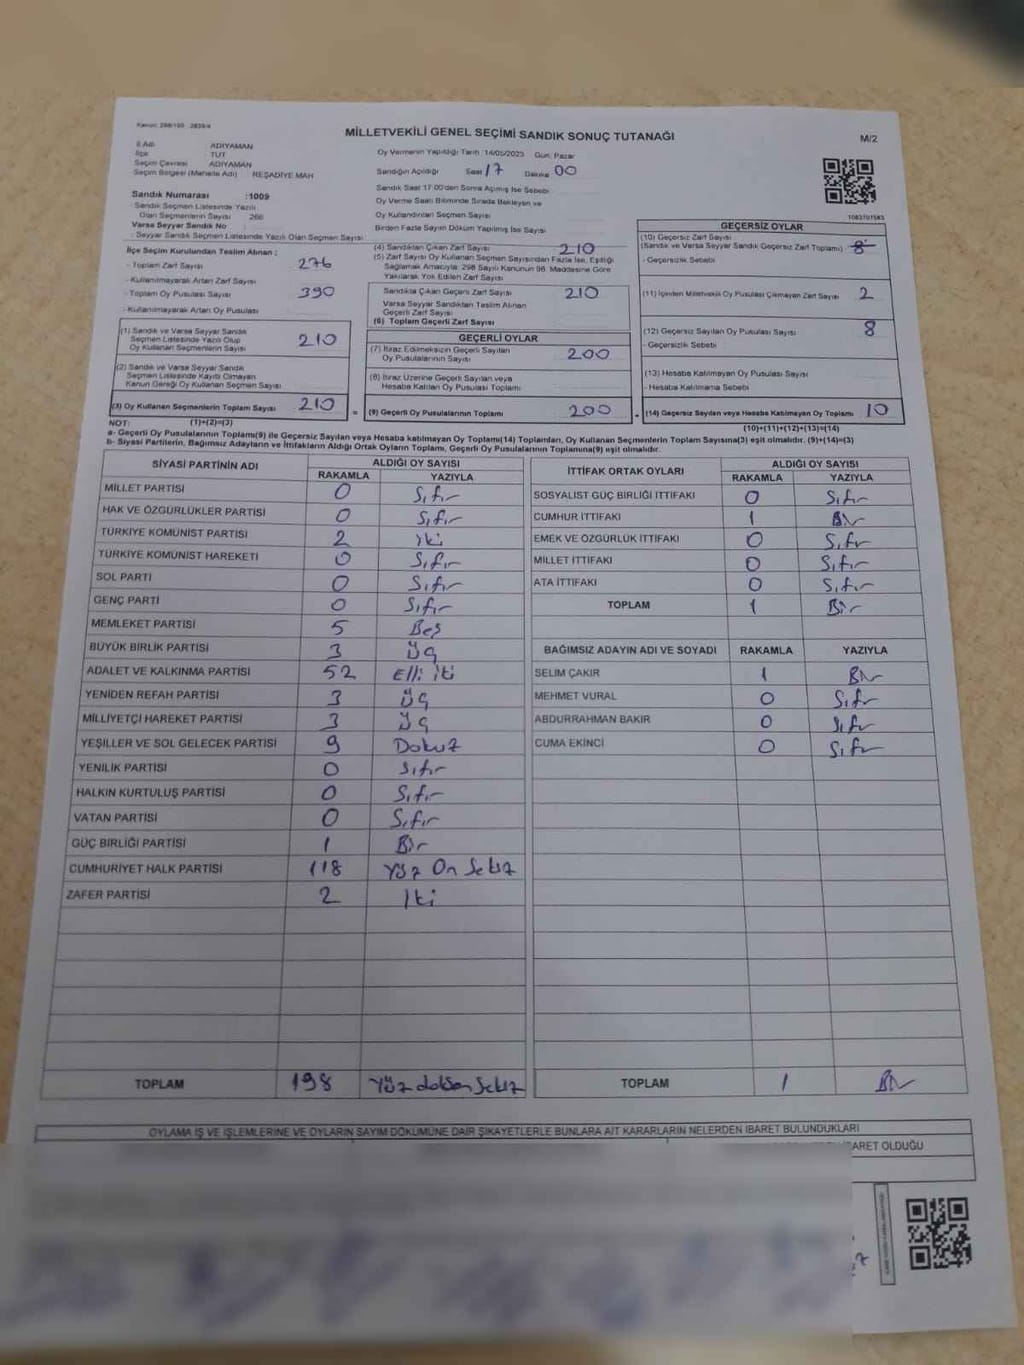 Kanun: 298/105 2839/4
MİLLETVEKİLİ GENEL SEÇİMİ SANDIK SONUÇ TUTANAĞI
M/2
İl Adı : ADIYAMAN
İlçe : TUT
Seçim Çevresi : ADIYAMAN
Seçim Bölgesi (Mahalle Adı) : REŞADİYE MAH
Oy Vermenin Yapıldığı Tarih :14/05/2023 Gün: Pazar
Sandığın Açıldığı Saat 17 Dakika 00
Sandık Saat 17:00'den Sonra Açılmış İse Sebebi
Oy Verme Saati Bitiminde Sırada Bekleyen ve
Oy Kullandırılan Seçmen Sayısı
Birden Fazla Sayım Döküm Yapılmış İse Sayısı
Sandık Numarası :1009
- Sandık Seçmen Listesinde Yazılı
Olan Seçmenlerin Sayısı 266
Varsa Seyyar Sandık No
- Seyyar Sandık Seçmen Listesinde Yazılı Olan Seçmen Sayısı
İlçe Seçim Kurulundan Teslim Alınan :
- Toplam Zarf Sayısı 276
- Kullanılmayarak Artan Zarf Sayısı
- Toplam Oy Pusulası Sayısı 390
- Kullanılmayarak Artan Oy Pusulası
(1) Sandık ve Varsa Seyyar Sandık
Seçmen Listesinde Yazılı Olup
Oy Kullanan Seçmenlerin Sayısı 210
(2) Sandık ve Varsa Seyyar Sandık
Seçmen Listesinde Kayıtlı Olmayan
Kanun Gereği Oy Kullanan Seçmen Sayısı
(3) Oy Kullanan Seçmenlerin Toplam Sayısı 210
(4) Sandıktan Çıkan Zarf Sayısı 210
(5) Zarf Sayısı Oy Kullanan Seçmen Sayısından Fazla İse, Eşitliği
Sağlamak Amacıyla; 298 Sayılı Kanunun 98. Maddesine Göre
Yakılarak Yok Edilen Zarf Sayısı
Sandıkta Çıkan Geçerli Zarf Sayısı 210
Varsa Seyyar Sandıktan Teslim Alınan
Geçerli Zarf Sayısı
(6) Toplam Geçerli Zarf Sayısı
GEÇERLİ OYLAR
(7) İtiraz Edilmeksizin Geçerli Sayılan
Oy Pusulalarının Sayısı 200
(8) İtiraz Üzerine Geçerli Sayılan veya
Hesaba Katılan Oy Pusulası Toplamı
= (9) Geçerli Oy Pusulalarının Toplamı 200
1083101583
GEÇERSİZ OYLAR
(10) Geçersiz Zarf Sayısı
(Sandık ve Varsa Seyyar Sandık Geçersiz Zarf Toplamı) 8
- Geçersizlik Sebebi
(11) İçinden Milletvekili Oy Pusulası Çıkmayan Zarf Sayısı 2
(12) Geçersiz Sayılan Oy Pusulası Sayısı 8
- Geçersizlik Sebebi
(13) Hesaba Katılmayan Oy Pusulası Sayısı
- Hesaba Katılmama Sebebi
+ (14) Geçersiz Sayılan veya Hesaba Katılmayan Oy Toplamı 10
NOT: (1)+(2)=(3)
(10)+(11)+(12)+(13)=(14)
a- Geçerli Oy Pusulalarının Toplamı(9) ile Geçersiz Sayılan veya Hesaba katılmayan Oy Toplamı(14) Toplamları, Oy Kullanan Seçmenlerin Toplam Sayısına(3) eşit olmalıdır. (9)+(14)=(3)
b- Siyasi Partilerin, Bağımsız Adayların ve İttifakların Aldığı Ortak Oyların Toplamı, Geçerli Oy Pusulalarının Toplamına(9) eşit olmalıdır.
SİYASİ PARTİNİN ADI ALDIĞI OY SAYISI
RAKAMLA YAZIYLA
MİLLET PARTİSİ 0 Sıfır
HAK VE ÖZGÜRLÜKLER PARTİSİ 0 Sıfır
TÜRKİYE KOMÜNİST PARTİSİ 2 iki
TÜRKİYE KOMÜNİST HAREKETİ 0 Sıfır
SOL PARTİ 0 Sıfır
GENÇ PARTİ 0 Sıfır
MEMLEKET PARTİSİ 5 Beş
BÜYÜK BİRLİK PARTİSİ 3 Üç
ADALET VE KALKINMA PARTİSİ 52 Elli iki
YENİDEN REFAH PARTİSİ 3 Üç
MİLLİYETÇİ HAREKET PARTİSİ 3 Üç
YEŞİLLER VE SOL GELECEK PARTİSİ 9 Dokuz
YENİLİK PARTİSİ 0 Sıfır
HALKIN KURTULUŞ PARTİSİ 0 Sıfır
VATAN PARTİSİ 0 Sıfır
GÜÇ BİRLİĞİ PARTİSİ 1 Bir
CUMHURİYET HALK PARTİSİ 118 Yüz On Sekiz
ZAFER PARTİSİ 2 İki
TOPLAM 198 Yüz doksan Sekiz
İTTİFAK ORTAK OYLARI ALDIĞI OY SAYISI
RAKAMLA YAZIYLA
SOSYALİST GÜÇ BİRLİĞİ İTTİFAKI 0 Sıfır
CUMHUR İTTİFAKI 1 Bir
EMEK VE ÖZGÜRLÜK İTTİFAKI 0 Sıfır
MİLLET İTTİFAKI 0 Sıfır
ATA İTTİFAKI 0 Sıfır
TOPLAM 1 Bir
BAĞIMSIZ ADAYIN ADI VE SOYADI RAKAMLA YAZIYLA
SELİM ÇAKIR 1 Bir
MEHMET VURAL 0 Sıfır
ABDURRAHMAN BAKIR 0 Sıfır
CUMA EKİNCİ 0 Sıfır
TOPLAM 1 Bir
OYLAMA İŞ VE İŞLEMLERİNE VE OYLARIN SAYIM DÖKÜMÜNE DAİR ŞİKAYETLERLE BUNLARA AİT KARARLARIN NELERDEN İBARET BULUNDUKLARI
OLDUĞU